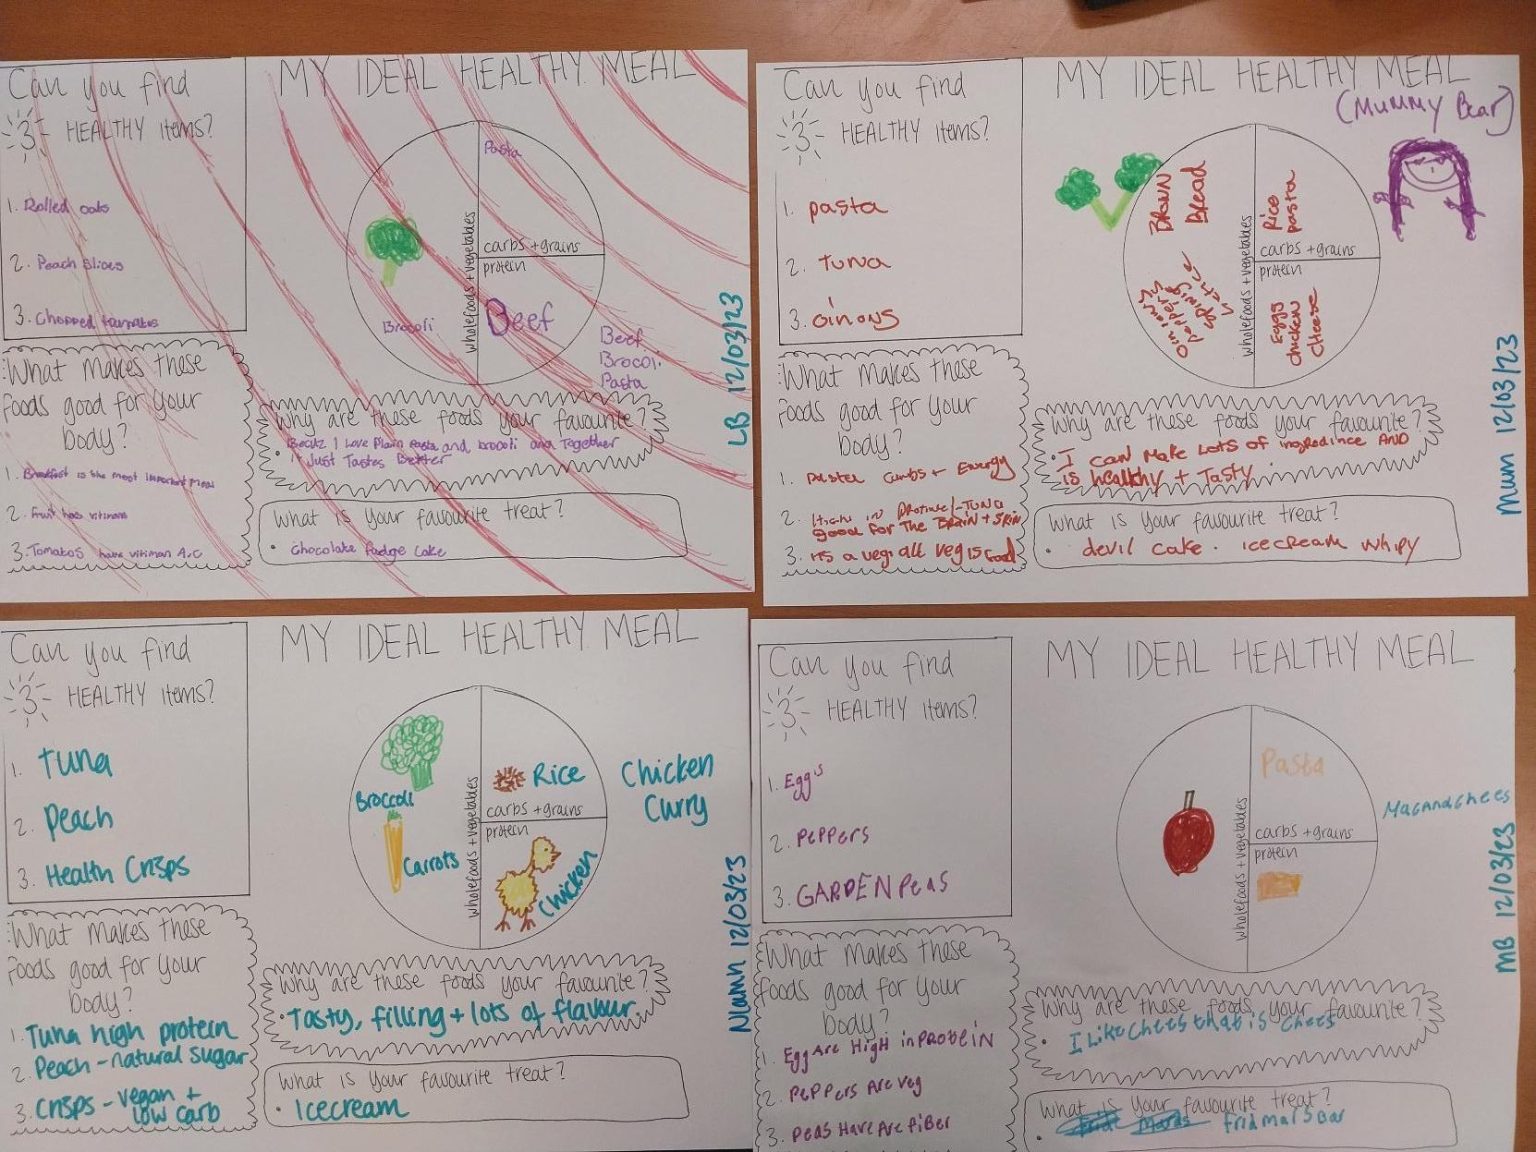 Can you find
3 HEALTHY items?
1. Rolled oats
2. Peach Slices
3. Chopped tamatos
What makes these
foods good for your
body?
1. Breakfast is the most important meal
2. Fruit has vitimans
3. Tomatos have vitiman A.C
MY IDEAL HEALTHY MEAL
Pasta
carbs + grains
protein
wholefoods + vegetables
Brocoli
Beef
Beef
Brocoli
Pasta
Why are these foods your favourite?
• I Love Plain Pasta and brocoli and Together
it Just Tastes Better
What is your favourite treat?
• Chocolate fudge Cake
LB 12/03/23
Can you find
3 HEALTHY items?
1. pasta
2. Tuna
3. oinons
What makes these
foods good for your
body?
1. Pasta carbs + Energy
2. High in - Tuna
good for The Brain + Skin
3. its a veg all veg is good
MY IDEAL HEALTHY MEAL
(Mummy Bear)
Brown
Bread
Rice
pasta
carbs + grains
protein
wholefoods + vegetables
Eggs
chicken
cheese
Why are these foods your favourite?
• I can make Lots of ingredince AND
is healthy + Tasty.
What is your favourite treat?
• devil cake. icecream whipy
Mum 12/03/23
Can you find
3 HEALTHY items?
1. Tuna
2. Peach
3. Health Crisps
What makes these
foods good for your
body?
1. Tuna high protein
2. Peach - natural sugar
3. Crisps - vegan +
low carb
MY IDEAL HEALTHY MEAL
Broccoli
Carrots
Rice
carbs + grains
protein
wholefoods + vegetables
Chicken
Chicken
Curry
Why are these foods your favourite?
• Tasty, filling + lots of flavour.
What is your favourite treat?
• Icecream
12/03/23
Can you find
3 HEALTHY items?
1. Eggs
2. PePPers
3. GARDEN Peas
What makes these
foods good for your
body?
1. Egg Are High in Protein
2. PePPers Are veg
3. Peas Have Are fiber
MY IDEAL HEALTHY MEAL
Pasta
carbs + grains
protein
wholefoods + vegetables
MacAndchees
Why are these foods your favourite?
• I Like Chees that is chees
What is your favourite treat?
• frid mars Bar
MB 12/03/23